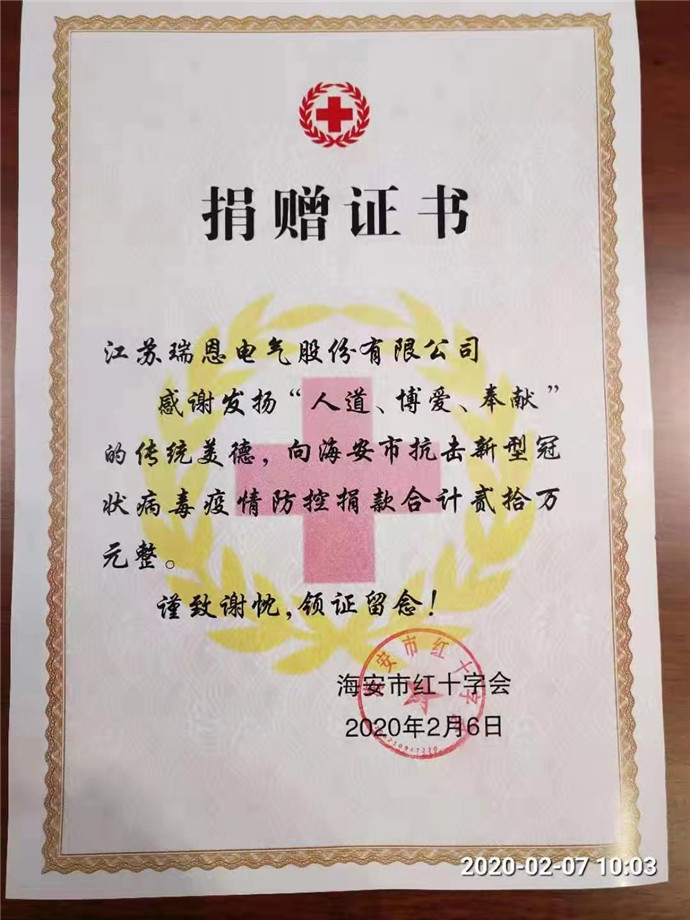 捐赠证书
江苏瑞恩电气股份有限公司
感谢发扬“人道、博爱、奉献”
的传统美德，向海安市抗击新型冠
状病毒疫情防控捐款合计贰拾万
元整。
谨致谢忱，领证留念！
海安市红十字会
2020年2月6日
2020-02-07 10:03